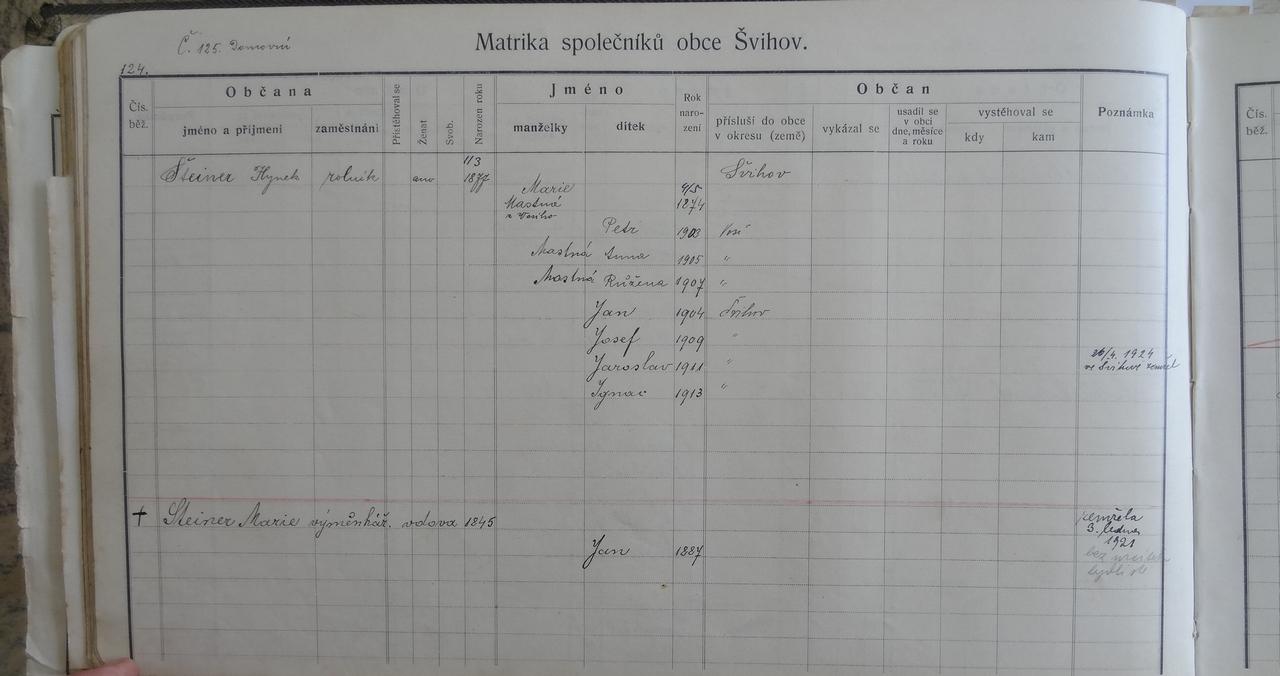 Č. 125. Domovní
Matrika společníků obce Švihov.
124.
Čís. běž.
Občana
jméno a příjmení
zaměstnání
Přistěhoval se
Ženat
Svob.
Narozen roku
Jméno
manželky
dítek
Rok naro- zení
Občan
přísluší do obce v okresu (země)
vykázal se
usadil se v obci dne, měsíce a roku
vystěhoval se
kdy
kam
Poznámka
Čís. běž.
Šteiner Hynek rolník ano 1/3 1877 Švihov
Marie 4/5
Mastná 1874
Petr 1903
Mastná Anna 1905 "
Mastná Růžena 1907 "
Jan 1904 Švihov
Josef 1909 "
Jaroslav 1911 " 26/4. 1924 ve Švihově zemřel
Ignac 1913 "
† Steiner Marie výměnkář. vdova 1845 zemřela
3. ledna
1921
Jan 1887